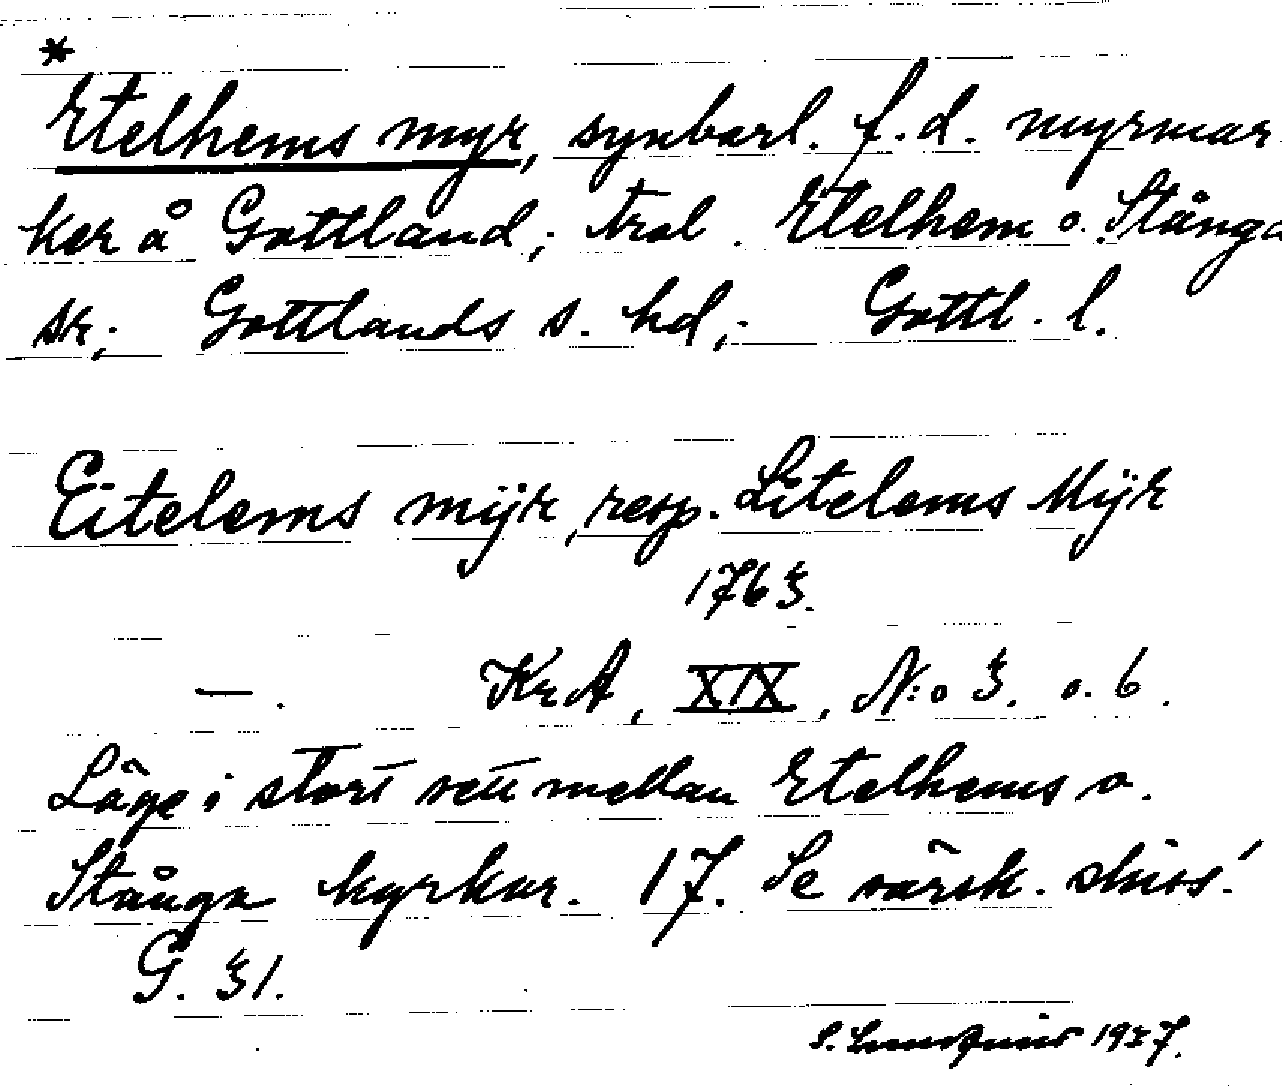 *
Etelhems myr, synbarl. f.d. myrmar
ker å Gottland; trol. Etelhem o. Stånga
sk; Gottlands s. hd; Gottl. l.
Eitelems mÿr, resp. Litelems Mÿr
1763.
—. KrA, XIX, N:o 3. o. 6.
Läge i stort sett mellan Etelhems o.
Stånga kyrkor. 17. Se särsk. skiss!
G. 31.
S. 1937.